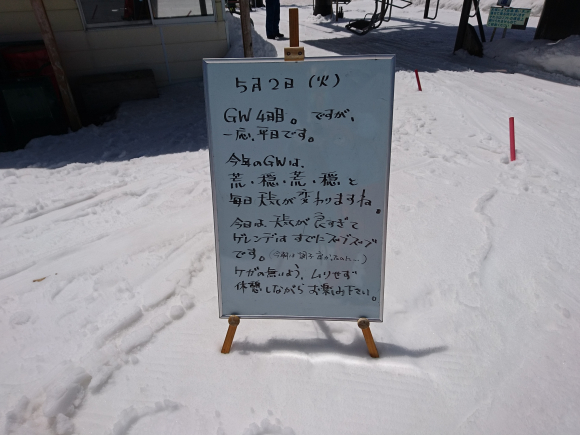 5月2日（火）
GW4日目。ですが、
一応、平日です。
今年のGWは、
荒・穏・荒・穏と
毎日天気が変わりますね。
今日は天気が良すぎて
ゲレンデはすでにズブズブ
です。(今朝は調子
ケガの無いよう、ムリせず
休憩しながらお楽しみ下さい。